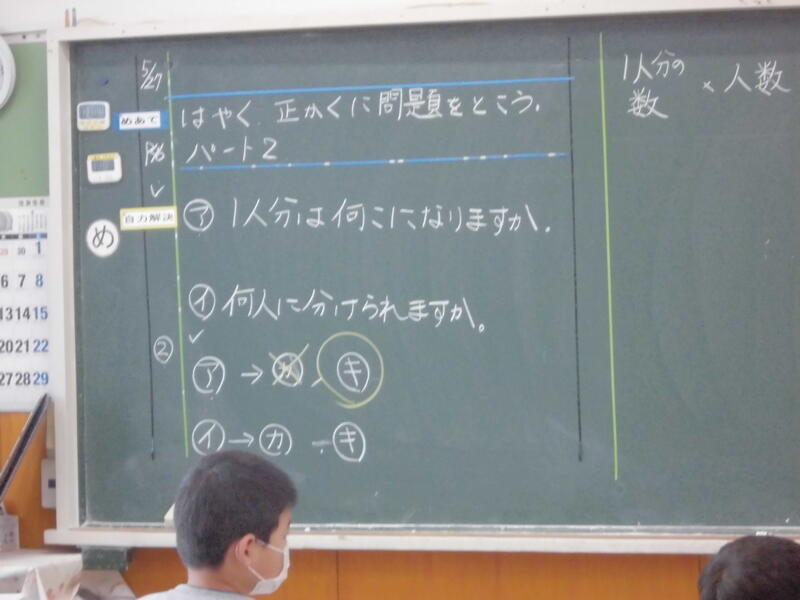 5/27
めあて
はやく、正かくに問題をとこう。
パート2
自力解決
め
㋐ 1人分は何こになりますか。
㋑ 何人に分けられますか。
②
㋐ → ㋕、㋖
㋑ → ㋕、㋖
1人分の数 × 人数
30 1
6 7 8
13 14 15
20 21 22
27 28 29